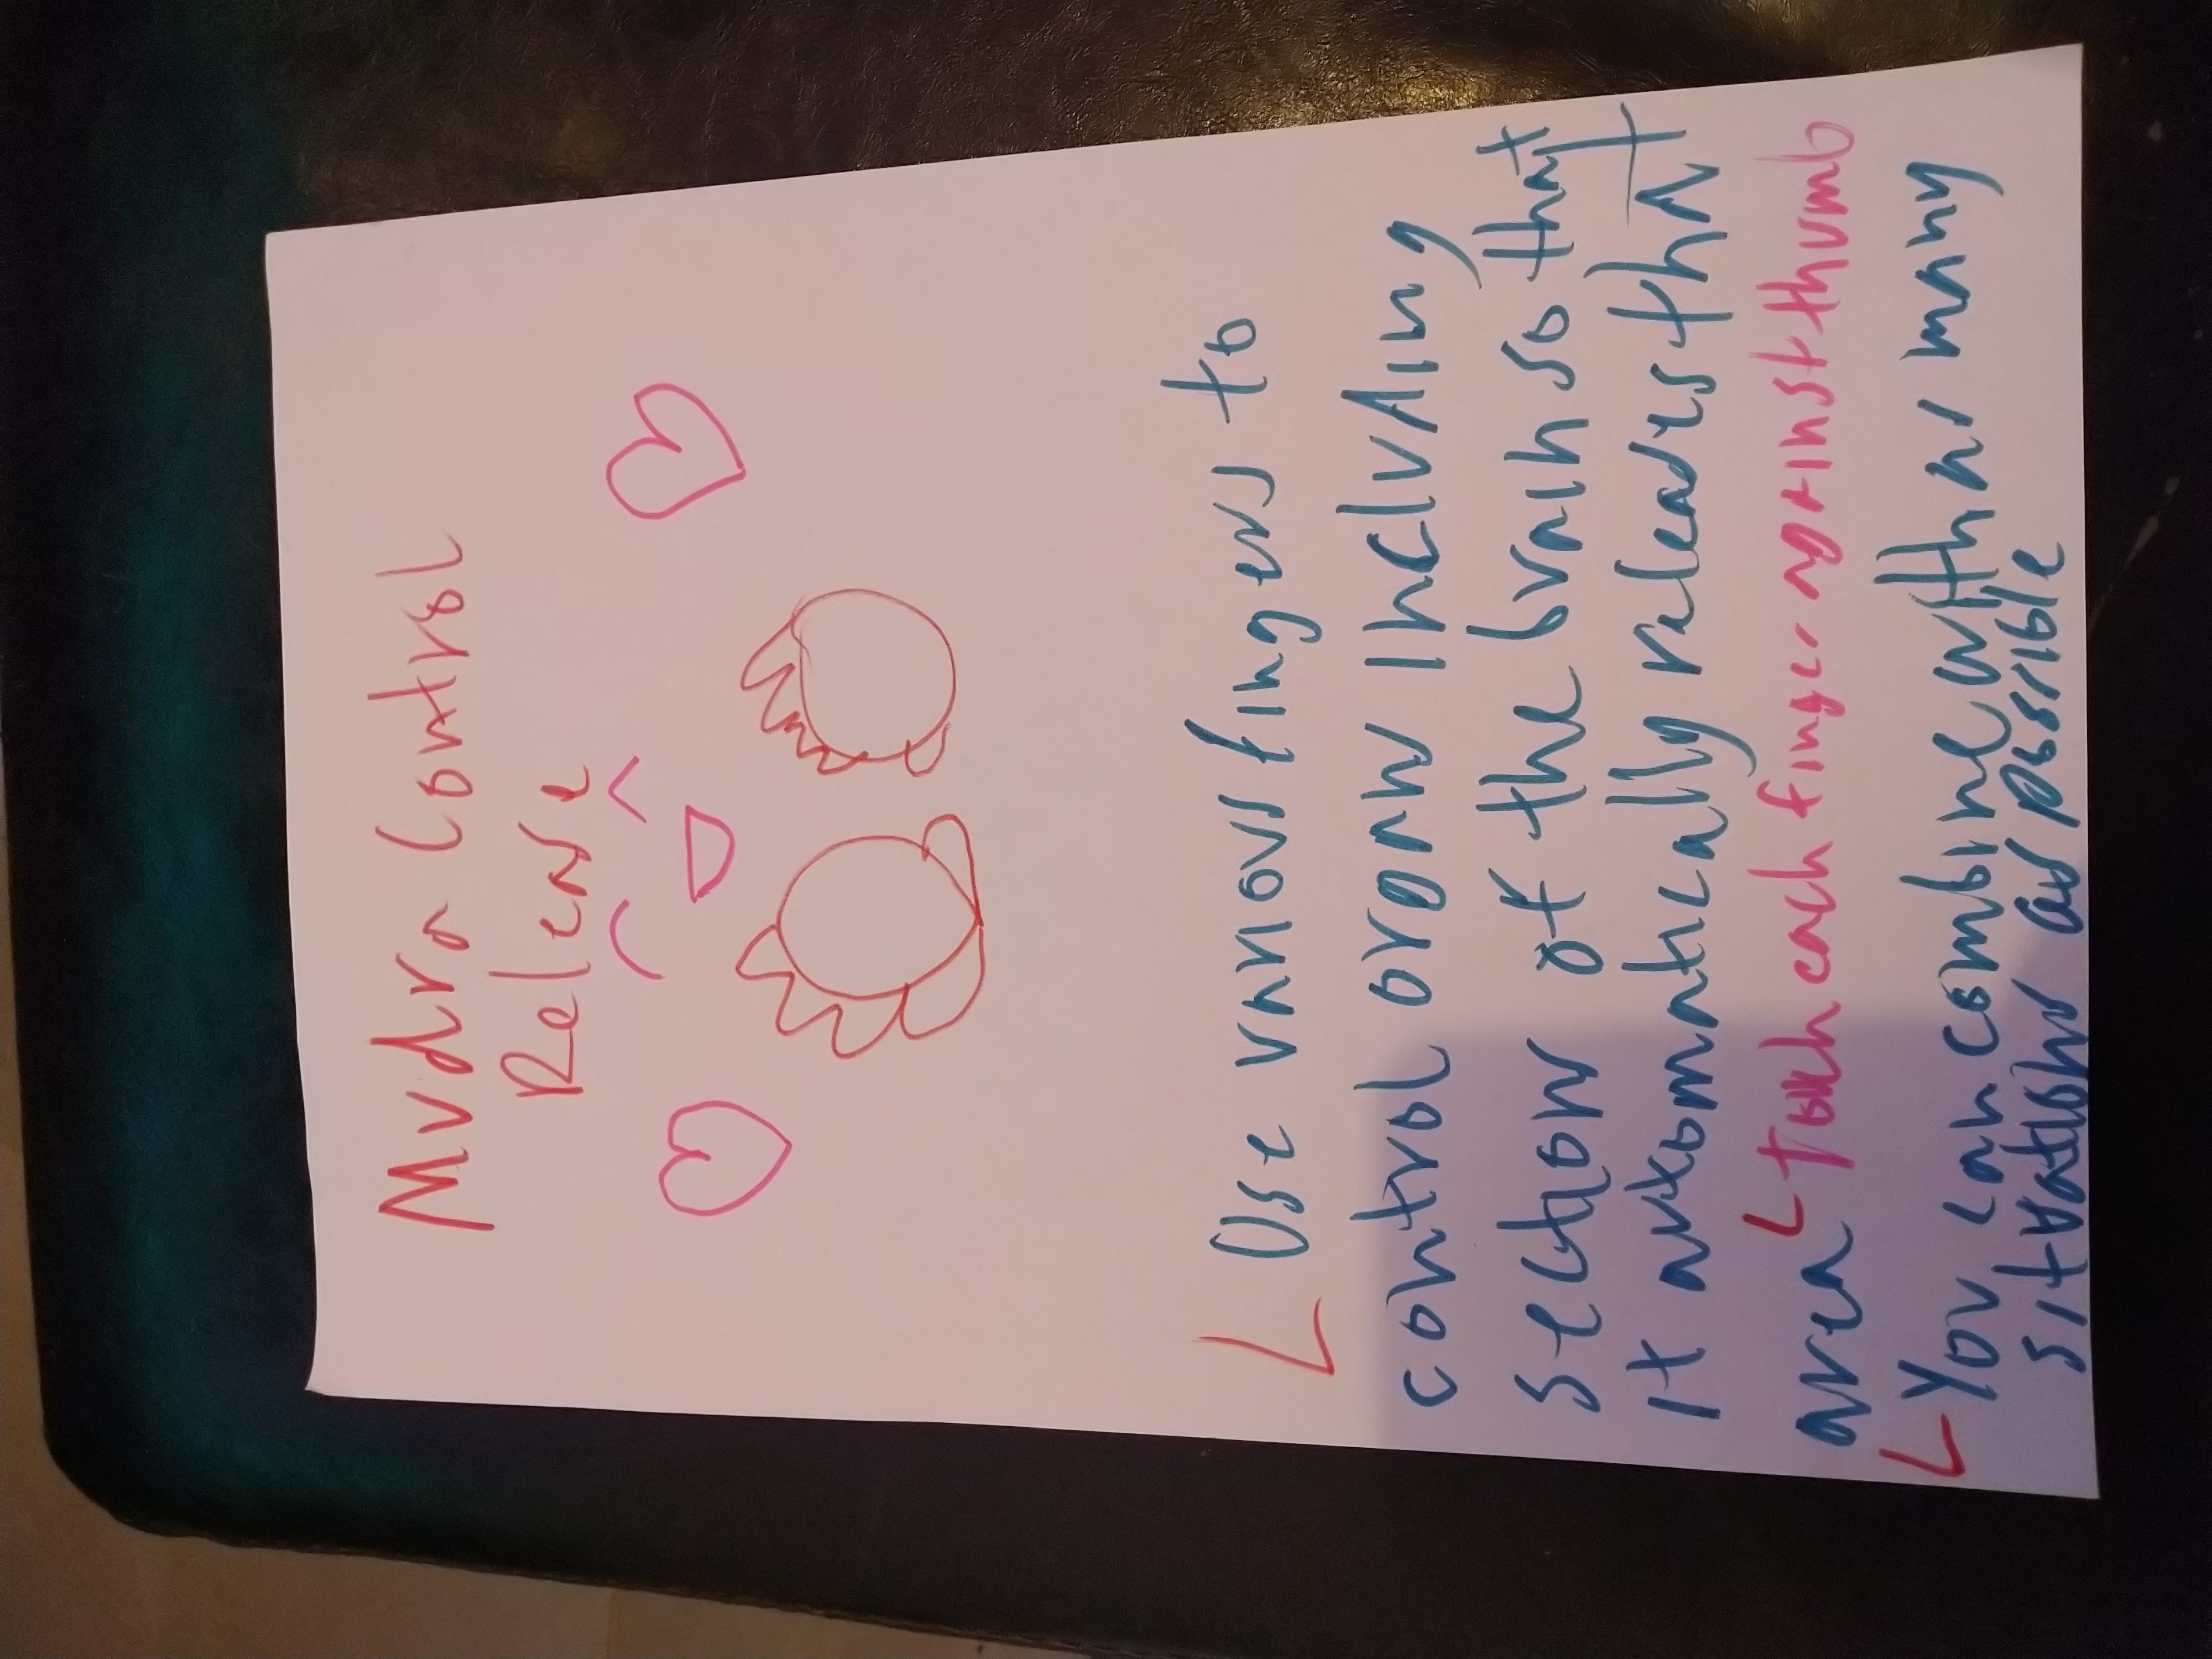 Mudra Control
Release
Use various fingers to
control organs including
section of the brain so that
it automatically releases that
area touch each finger against thumb
You can combine with as many
situations as possible